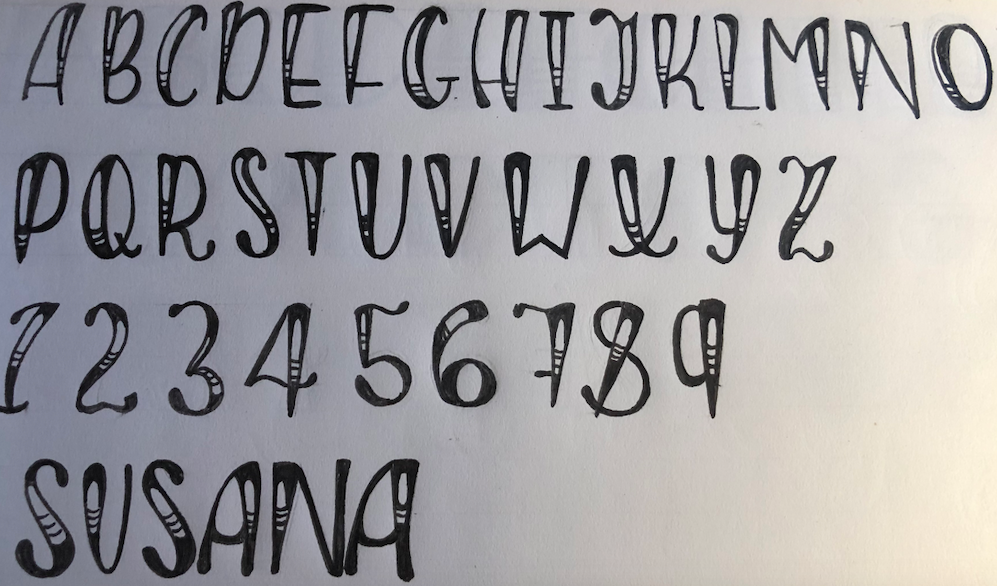 ABCDEFGHIJKLMNO
PQRSTUVWXYZ
123456789
SUSANA